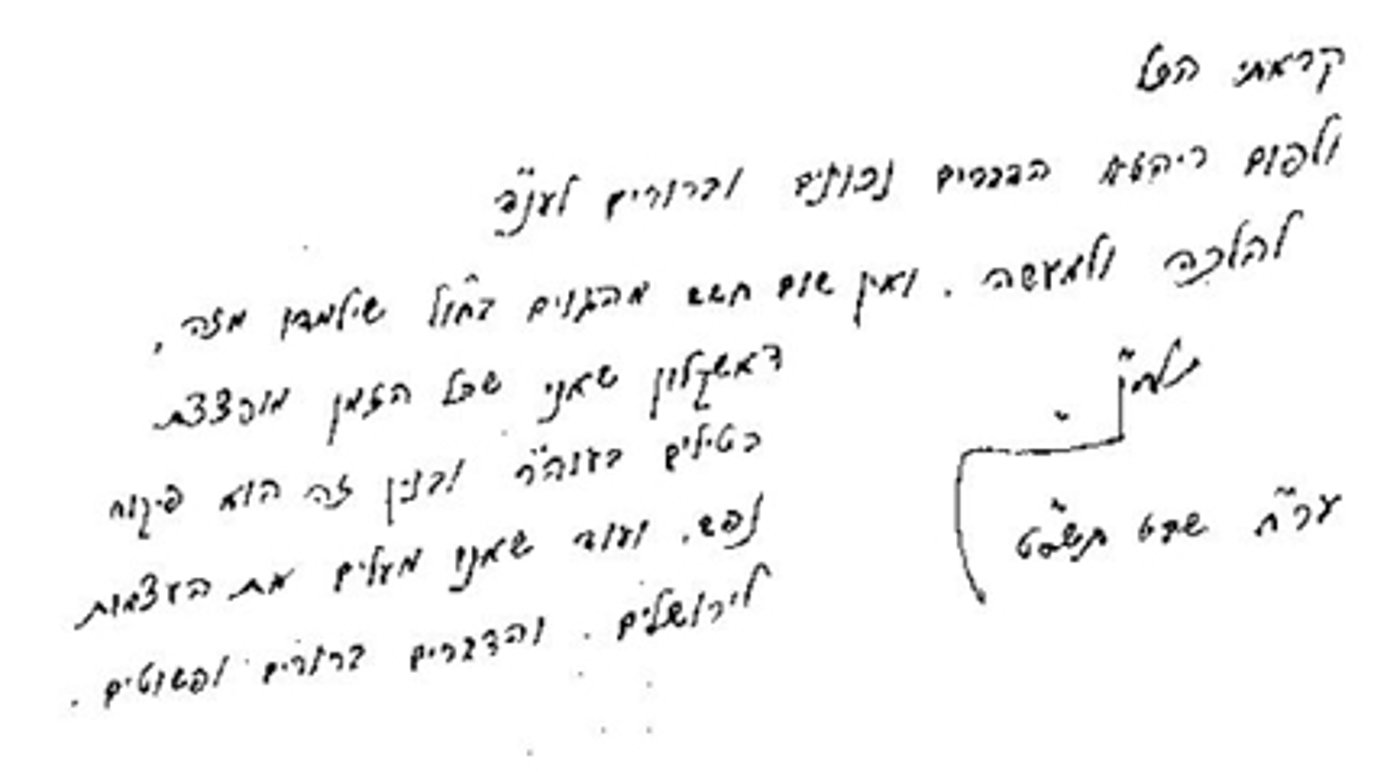 קראתי הכל
ולפום ריהטא הדברים נכונים וברורים לענ"ד
להלכה ולמעשה. ואין שום חשש מהגוים בחו"ל שילמדו מזה,
דאשקלון שאני שכל הזמן מופצצת
בטילים בעוה"ר ובנין זה הוא פיקוח
נפש. ועוד שאנו מעלים את העצמות
לירושלים. והדברים ברורים ופשוטים.
ער"ח שבט תשס"ט